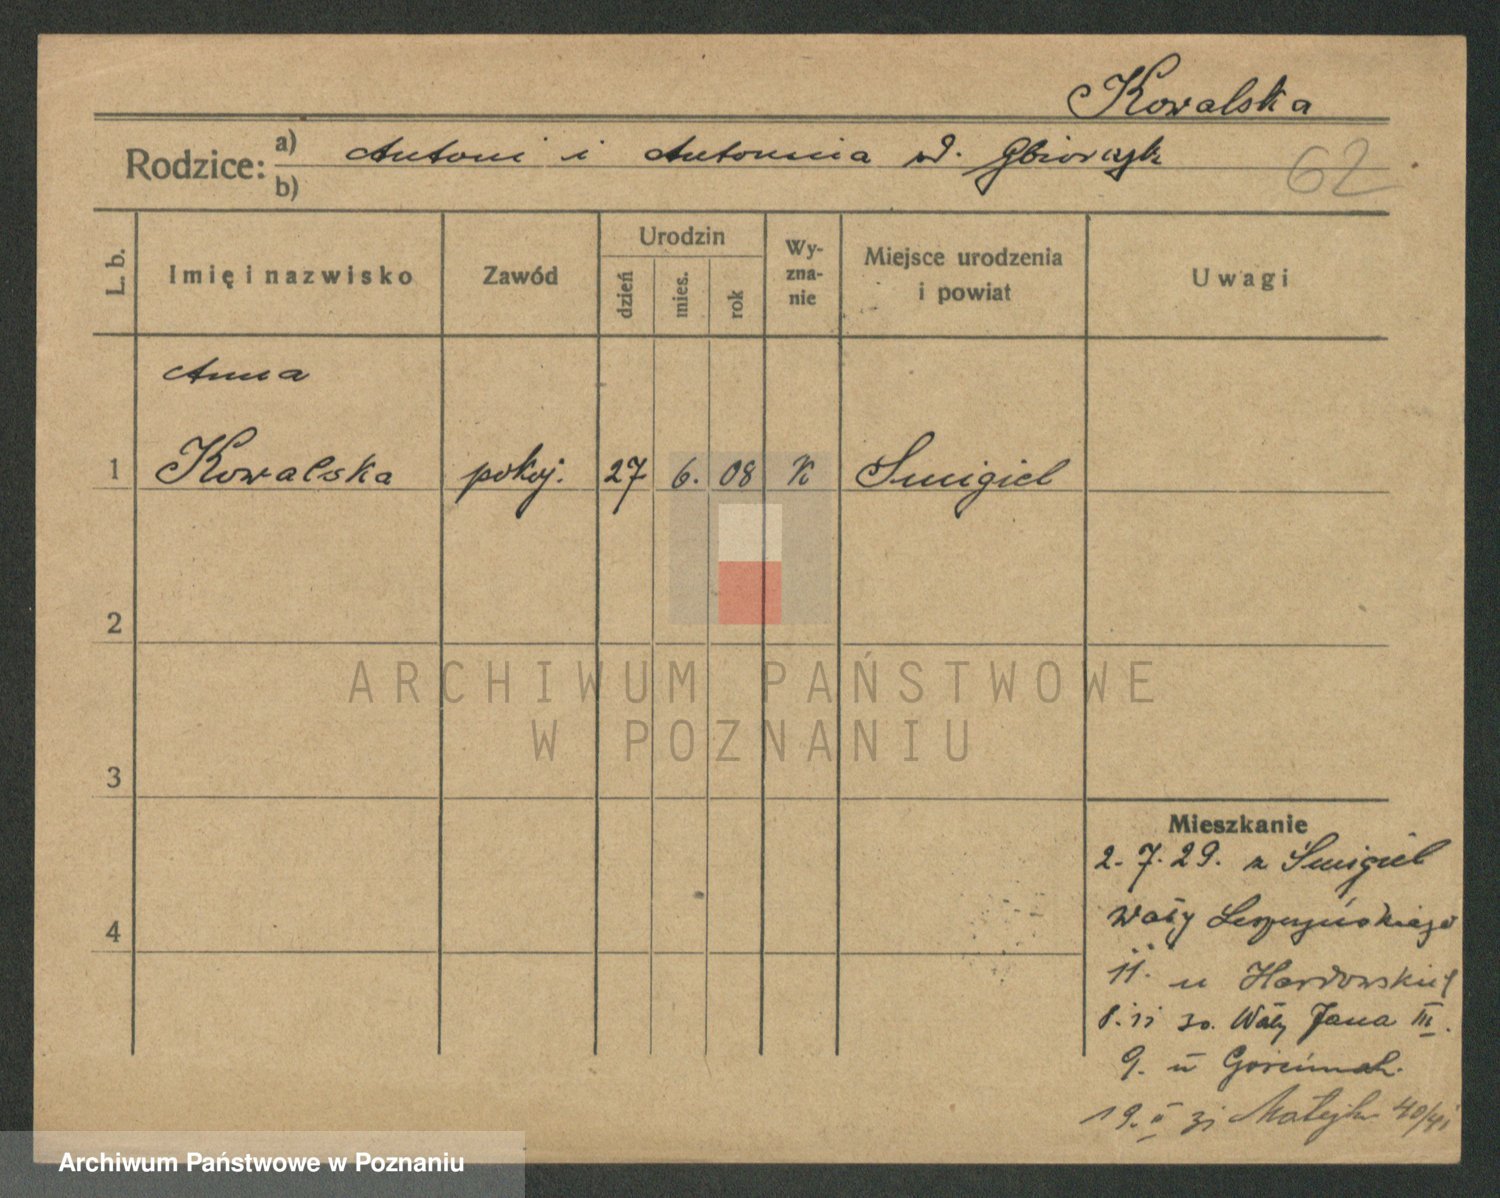 Kowalska
Rodzice: a) Antoni i Antonina
b)
62
L. b.
Imię i nazwisko
Zawód
Urodzin
dzień
mies.
rok
Wy-
zna-
nie
Miejsce urodzenia
i powiat
Uwagi
Anna
1 Kowalska pokoj. 27 6. 08 K Śmigiel
2
3
4
Mieszkanie
2. 7. 29. z Śmigiel
Wały Leszczyńskiego
11. u
30. Wały Jana III.
9. u
19. II 31 Matejki 40/41
ARCHIWUM PAŃSTWOWE
W POZNANIU
Archiwum Państwowe w Poznaniu